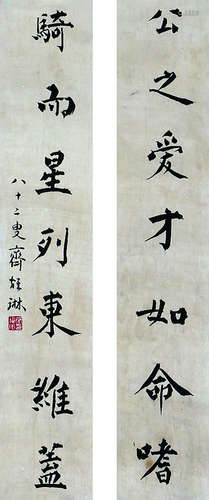 公之愛才如命嗜
騎而星列東維蓋
八十二叟齊耀琳